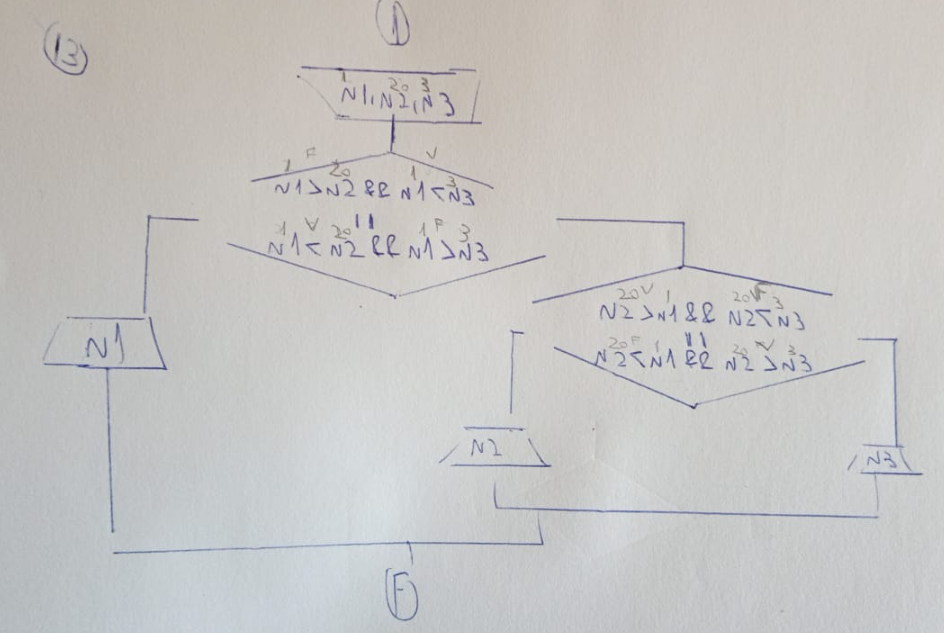 I
13
1 20 3
N1, N2, N3
F V
1 20 1 3
N1>N2 && N1<N3
||
1 V 20 1 F 3
N1<N2 && N1>N3
20 V 1 20 F 3
N2>N1 && N2<N3
||
20 F 1 20 V 3
N2<N1 && N2>N3
N1
N2
N3
F